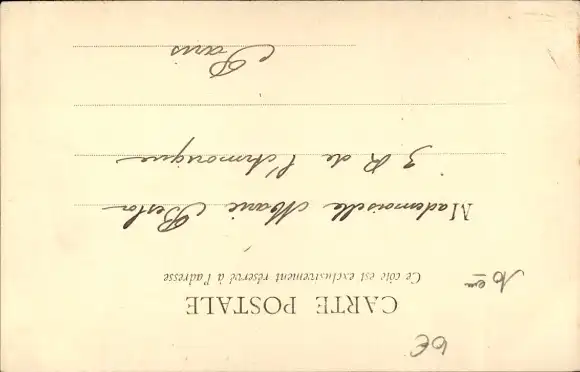 6€
CARTE POSTALE
Ce côté est exclusivement réservé à l'adresse
Mademoiselle Marie
3 R de l'Armorique
Paris